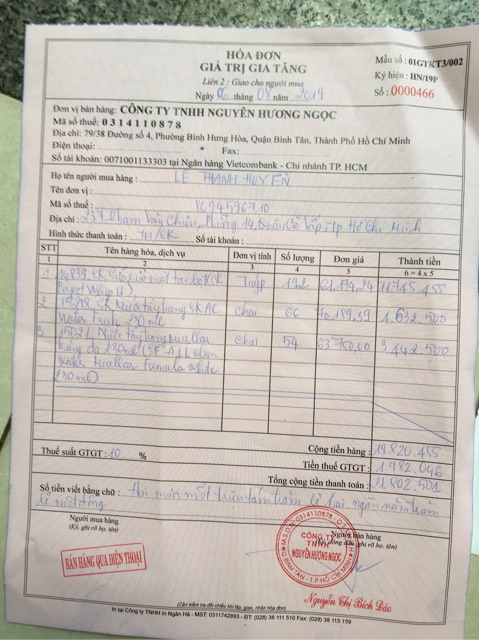 HÓA ĐƠN
GIÁ TRỊ GIA TĂNG
Liên 2 : Giao cho người mua
Ngày 06 tháng 08 năm 2019
Mẫu số : 01GTKT3/002
Ký hiệu : HN/19P
Số : 0000466
Đơn vị bán hàng: CÔNG TY TNHH NGUYÊN HƯƠNG NGỌC
Mã số thuế: 0314110878
Địa chỉ: 79/38 Đường số 4, Phường Bình Hưng Hòa, Quận Bình Tân, Thành Phố Hồ Chí Minh
Điện thoại: * Fax:
Số tài khoản: 0071001133303 tại Ngân hàng Vietcombank - Chi nhánh TP. HCM
Họ tên người mua hàng : LÊ THANH HUYỀN
Tên đơn vị :
Mã số thuế : 8094596710
Địa chỉ : 237 Phạm Văn Chiêu, Phường 14, Quận Gò Vấp, Tp Hồ Chí Minh
Hình thức thanh toán : TM/CK Số tài khoản :
STT Tên hàng hóa, dịch vụ Đơn vị tính Số lượng Đơn giá Thành tiền
1 2 3 4 5 6 = 4 x 5
1 14839 SK Sữa rửa mặt tạo bọt (SK Tuýp 192 61.174,24 11.745.455
2 15298 SK Nước tẩy trang SK AC chai 66
Water Fresh 230ml
3 Nước tẩy trang chai 54 63.750,00 3.442.500
230ml
Water White
230ml)
Cộng tiền hàng : 19.820.455
Thuế suất GTGT : 10 % Tiền thuế GTGT : 1.982.046
Tổng cộng tiền thanh toán : 21.802.501
Số tiền viết bằng chữ : Hai mươi một triệu tám trăm lẻ hai ngàn năm trăm
lẻ một đồng
Người mua hàng
(Ký, ghi rõ họ, tên)
Người bán hàng
ghi rõ họ, tên)
BÁN HÀNG QUA ĐIỆN THOẠI
M.S.D.N: 0314110878
CÔNG TY
TNHH
NGUYÊN HƯƠNG NGỌC
BÌNH TÂN - T.P HỒ CHÍ MINH
Nguyễn Thị Bích Đào
(Cần kiểm tra đối chiếu khi lập, giao, nhận hóa đơn)
In tại Công ty TNHH In Ngân Hà - MST: 0311742893 - ĐT: (028) 38 111 510 Fax: (028) 38 115 159